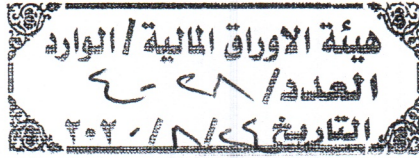 هيئة الاوراق المالية / الوارد
العدد / ٢٨-٤
التاريخ ٢٤ / ٨ / ٢٠٢٠